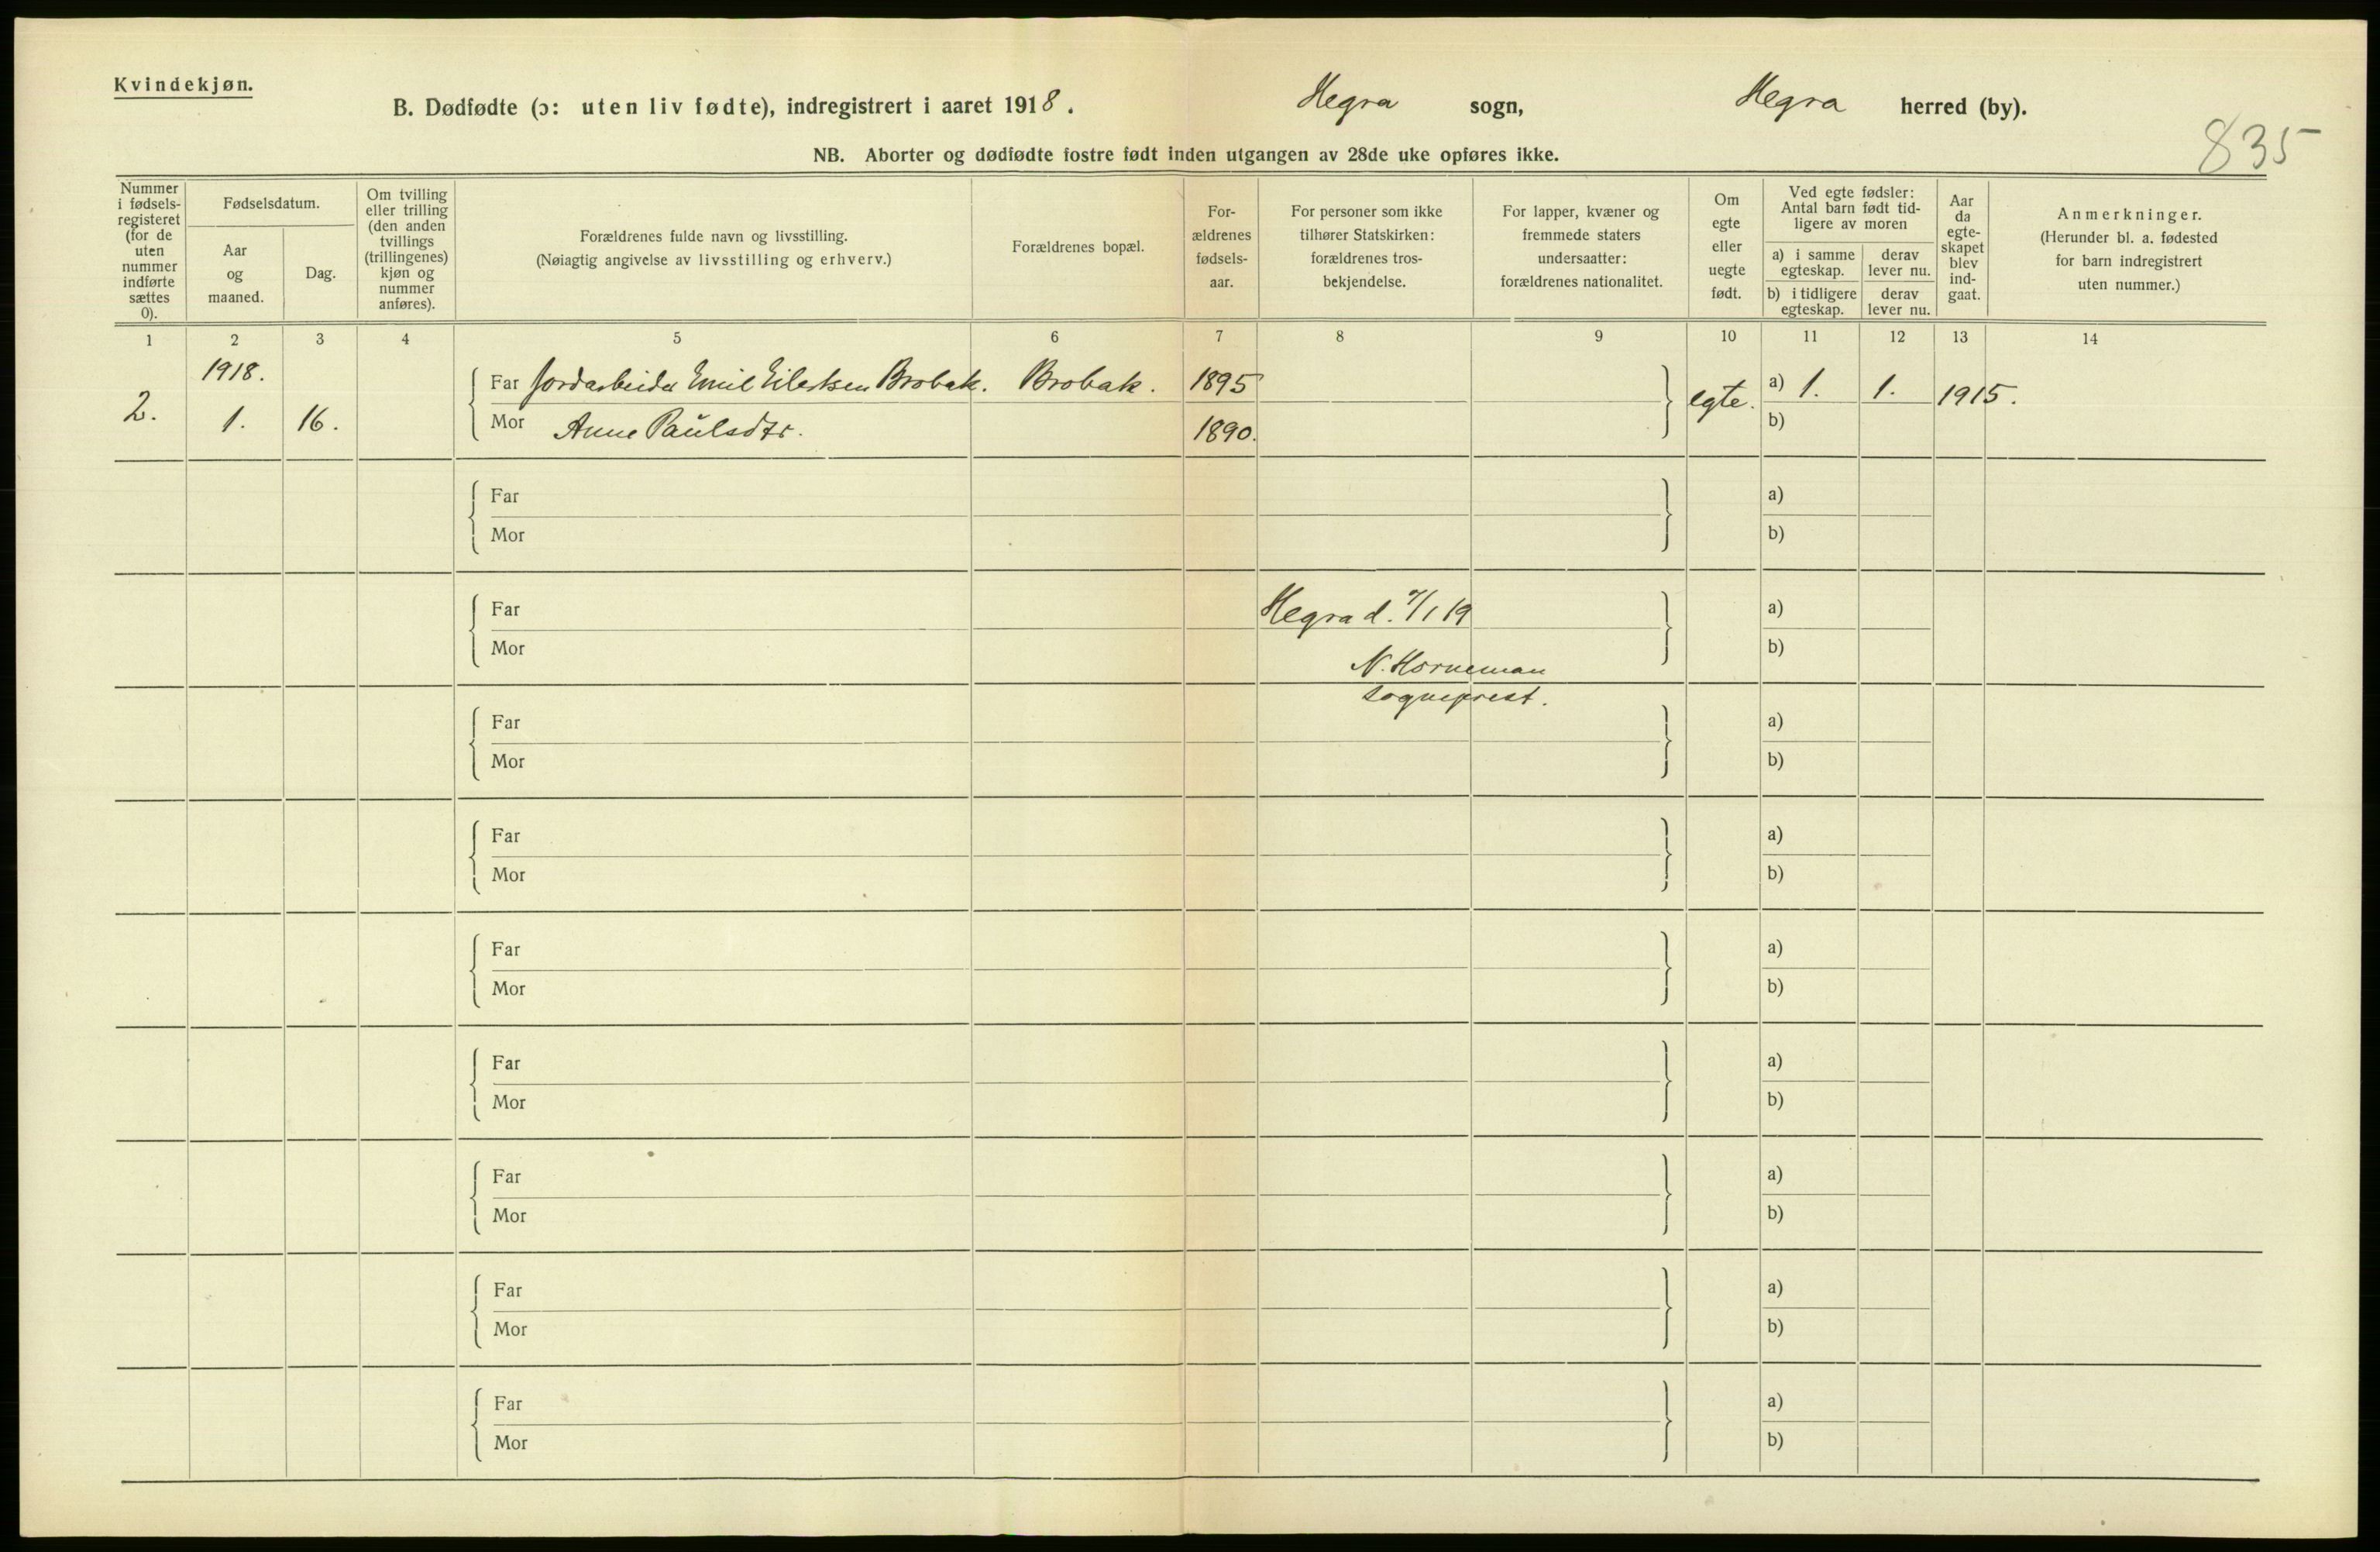 Kvindekjøn.
B. Dødfødte (ɔ: uten liv fødte), indregistrert i aaret 1918. Hegra sogn, Hegra herred (by).
835
NB. Aborter og dødfødte fostre født inden utgangen av 28de uke opføres ikke.
Nummer i fødsels-registeret (for de uten nummer indførte sættes 0).
Fødselsdatum.
Aar og maaned.
Dag.
Om tvilling eller trilling (den anden tvillings (trillingenes) kjøn og nummer anføres).
Forældrenes fulde navn og livsstilling.
(Nøiagtig angivelse av livsstilling og erhverv.)
Forældrenes bopæl.
For-ældrenes fødsels-aar.
For personer som ikke tilhører Statskirken: forældrenes tros-bekjendelse.
For lapper, kvæner og fremmede staters undersaatter: forældrenes nationalitet.
Om egte eller uegte født.
Ved egte fødsler: Antal barn født tid-ligere av moren
a) i samme egteskap.
derav lever nu.
b) i tidligere egteskap.
derav lever nu.
Aar da egte-skapet blev ind-gaat.
Anmerkninger.
(Herunder bl. a. fødested for barn indregistrert uten nummer.)
1 2 3 4 5 6 7 8 9 10 11 12 13 14
1918.
2. 1. 16.
Far Jordarbeider Emil Eilertsen Brobak. Brobak. 1895 egte. a) 1. 1. 1915.
Mor Anne Paulsdtr. 1890. b)
Far a)
Mor b)
Far Hegra d. 7/1 19 a)
Mor b)
N. Horneman
sogneprest.
Far a)
Mor b)
Far a)
Mor b)
Far a)
Mor b)
Far a)
Mor b)
Far a)
Mor b)
Far a)
Mor b)
Far a)
Mor b)